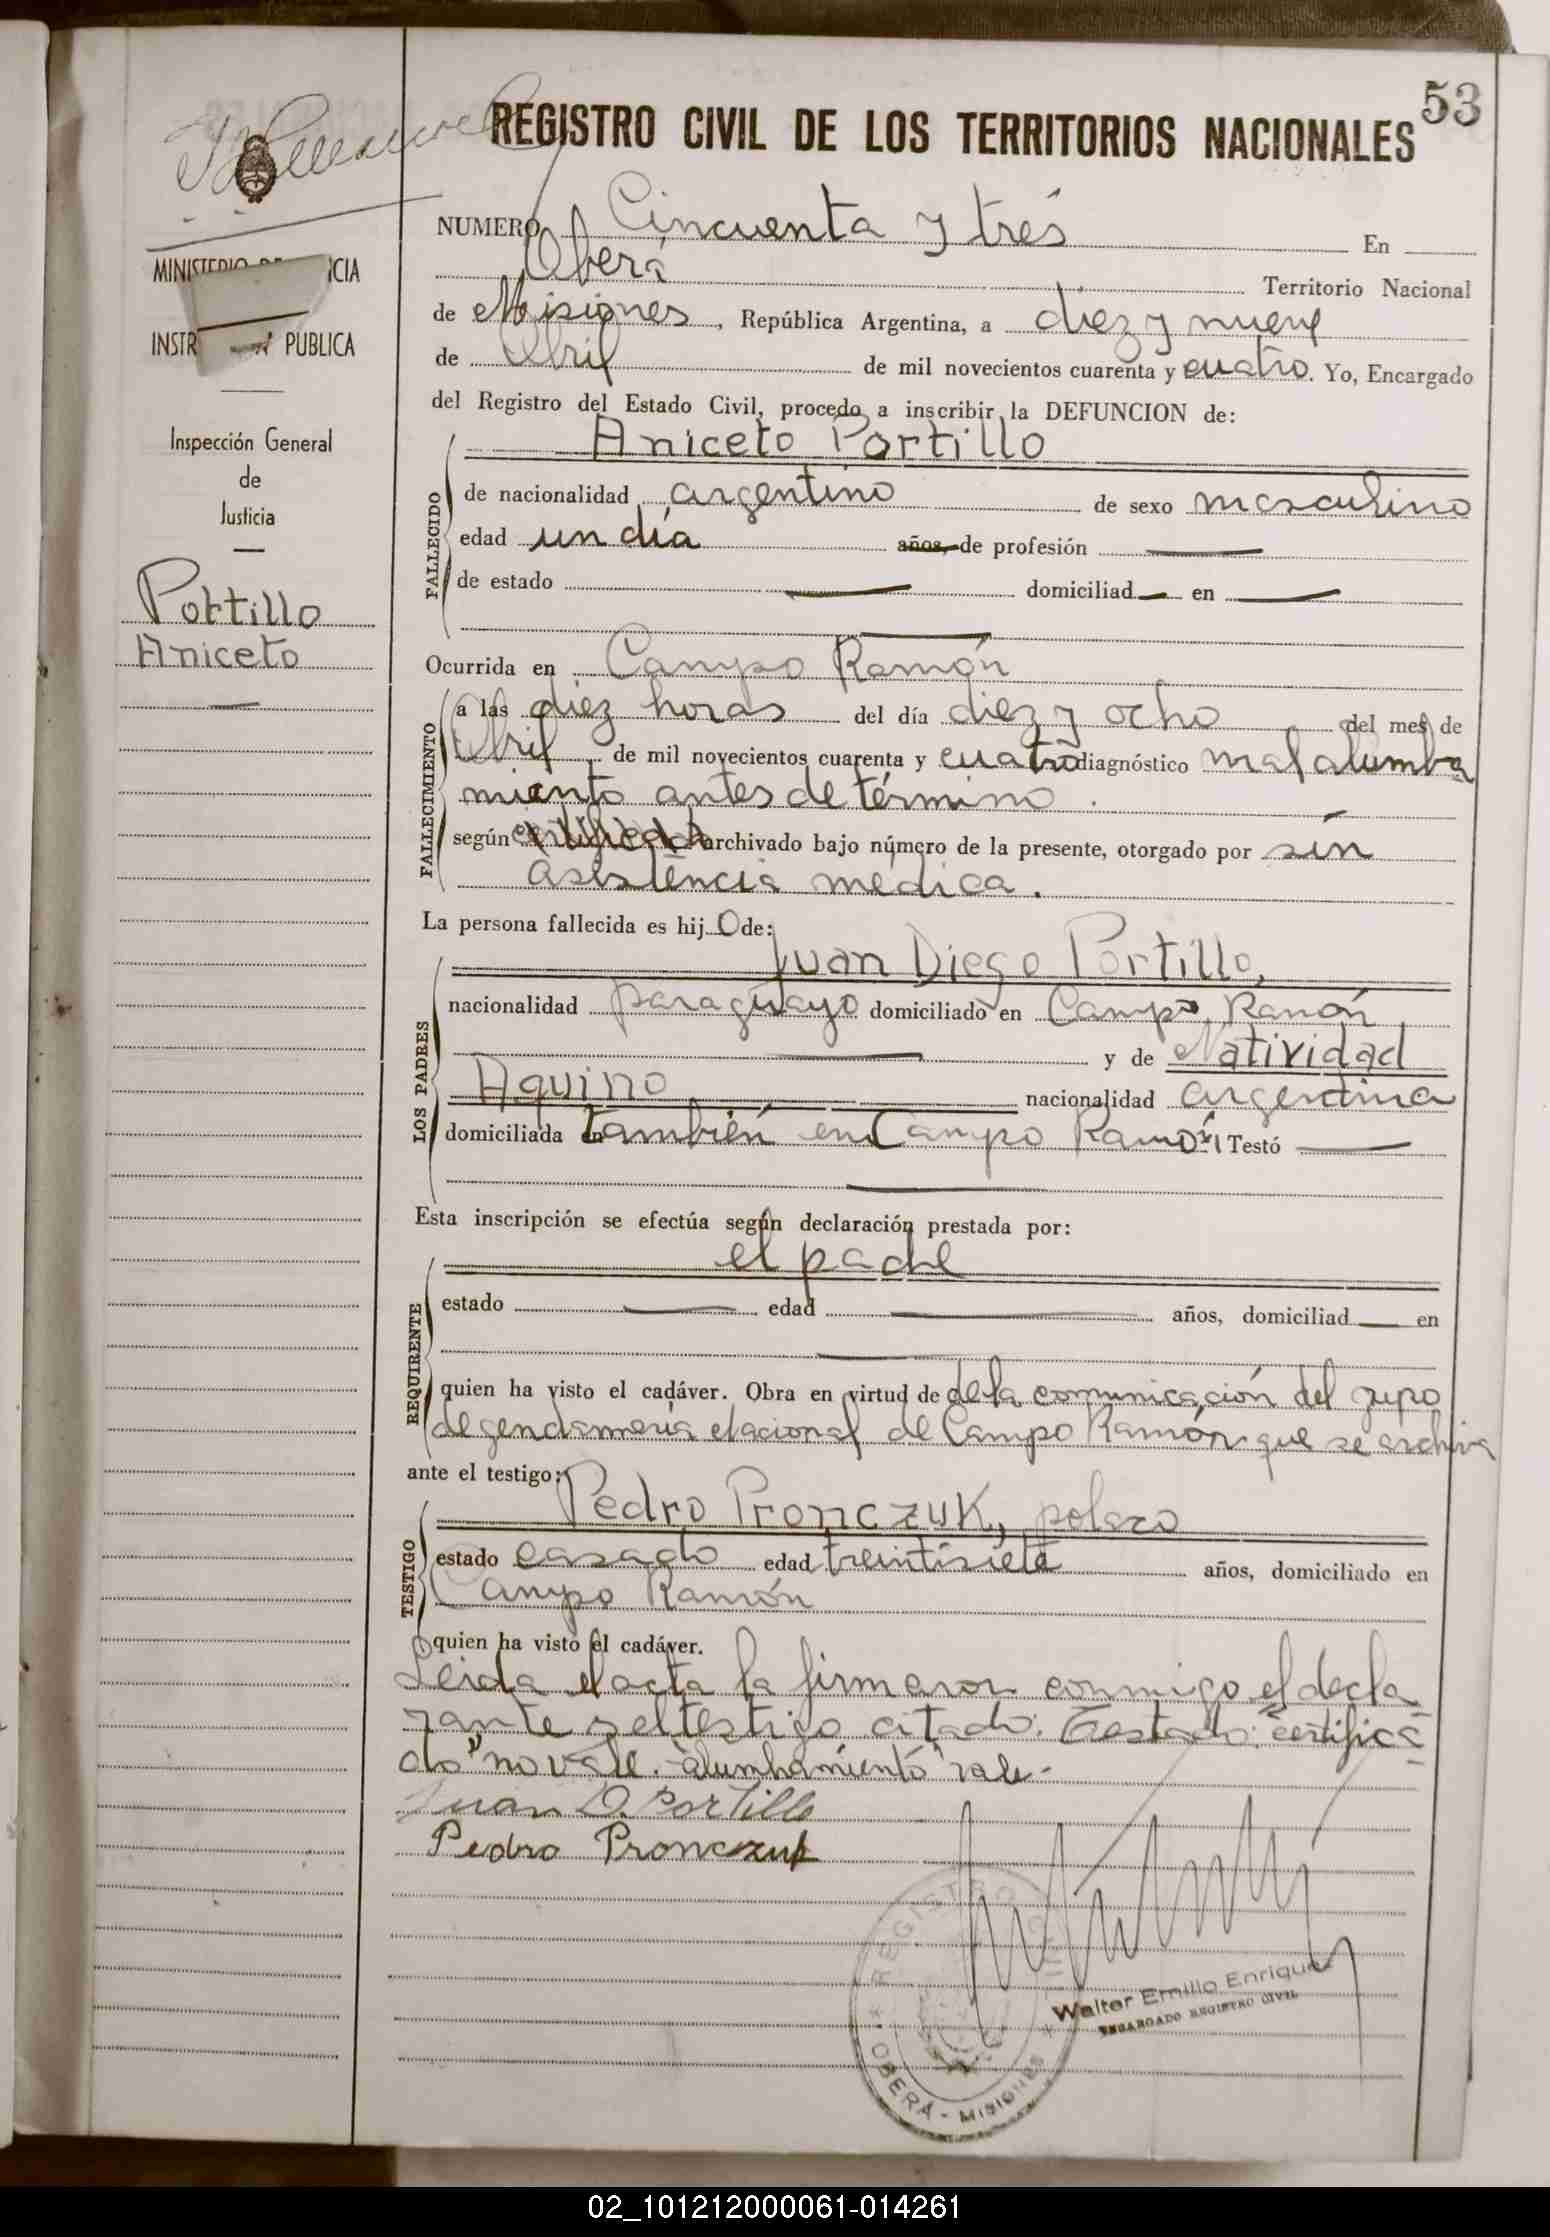 53
REGISTRO CIVIL DE LOS TERRITORIOS NACIONALES
NUMERO Cincuenta y tres En
Oberá Territorio Nacional
de Misiones, República Argentina, a diez y nueve
de Abril de mil novecientos cuarenta y cuatro. Yo, Encargado
del Registro del Estado Civil, procedo a inscribir la DEFUNCION de:
Aniceto Portillo
FALLECIDO
de nacionalidad argentino de sexo masculino
edad un día años, de profesión
de estado domiciliad en
MINISTERIO DE CIA
INSTR PUBLICA
Inspección General
de
Justicia
Portillo
Aniceto
Ocurrida en Campo Ramón
FALLECIMIENTO
a las diez horas del día diez y ocho del mes de
Abril de mil novecientos cuarenta y cuatro diagnóstico mal alumbra
miento antes de término.
según certificado archivado bajo número de la presente, otorgado por sin
asistencia médica.
La persona fallecida es hijo de:
LOS PADRES
Juan Diego Portillo,
nacionalidad paraguayo domiciliado en Campo Ramón
y de Natividad
Aquino nacionalidad argentina
domiciliada en también en Campo Ramón Testó
Esta inscripción se efectúa según declaración prestada por:
el padre
REQUIRENTE
estado edad años, domiciliad en
quien ha visto el cadáver. Obra en virtud de de la comunicación del grupo
de gendarmeria nacional de Campo Ramón que se archiva
ante el testigo:
TESTIGO
Pedro Pronczuk, polaco
estado casado edad treintisiete años, domiciliado en
Campo Ramón
quien ha visto el cadáver.
Leida el acta la firmaron conmigo el decla
rante y el testigo citado. Testado: "certifica
do" no vale. "alumbramiento" vale.-
Juan D. Portillo
Pedro Pronczuk
REGISTRO CIVIL
OBERÁ - MISIONES
Walter Emilio Enriquez
ENCARGADO REGISTRO CIVIL
02_101212000061-014261